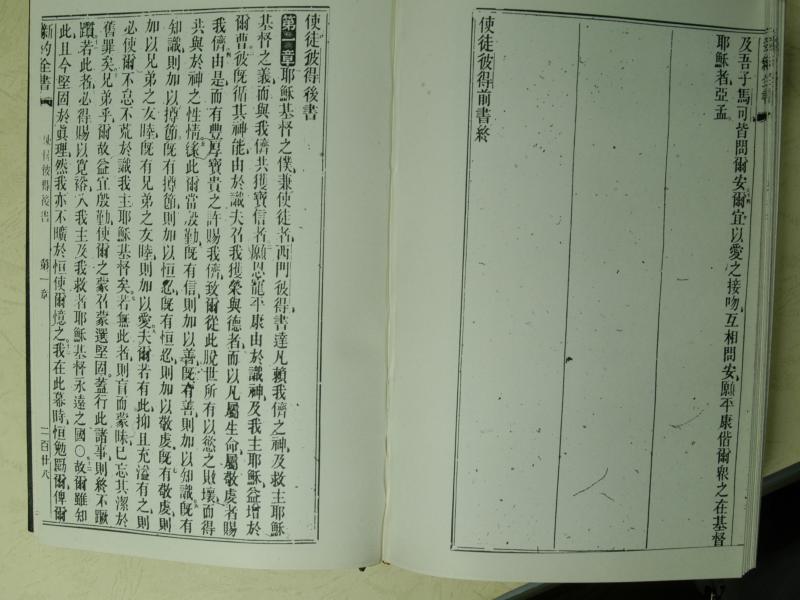 及吾子馬可皆問爾安爾宜以愛之接吻互相問安願平康偕爾衆之在基督
耶穌者亞孟
使徒彼得前書終
使徒彼得後書
第一章耶穌基督之僕兼使徒者西門彼得書達凡賴我儕之神及救主耶穌
基督之義而與我儕共獲寶信者願恩寵平康由於識神及我主耶穌益增於
爾曹彼旣循其神能由於識夫召我獲榮與德者而以凡屬生命屬敬虔者賜
我儕由是而有豐厚寶貴之許賜我儕致爾從此脫世所有以慾之敗壞而得
共與於神之性情緣此爾當殷勤旣有信則加以善旣有善則加以知識旣有
知識則加以撙節旣有撙節則加以恒忍旣有恒忍則加以敬虔旣有敬虔則
加以兄弟之友睦旣有兄弟之友睦則加以愛夫爾若有此抑且充溢有之則
必使爾不怠不荒於識我主耶穌基督矣若無此者則盲而蒙昧已忘其潔於
舊罪矣兄弟乎爾故益宜殷勤使爾之蒙召蒙選堅固蓋行此諸事則終不蹶
躓若此者必得賜以寬裕入我主及我救者耶穌基督永遠之國〇故爾雖知
此且今堅固於眞理然我亦不曠於恒使爾憶之我在此幕時恒勉勵爾俾爾
新約全書 使徒彼得後書 第一章 二百廿八